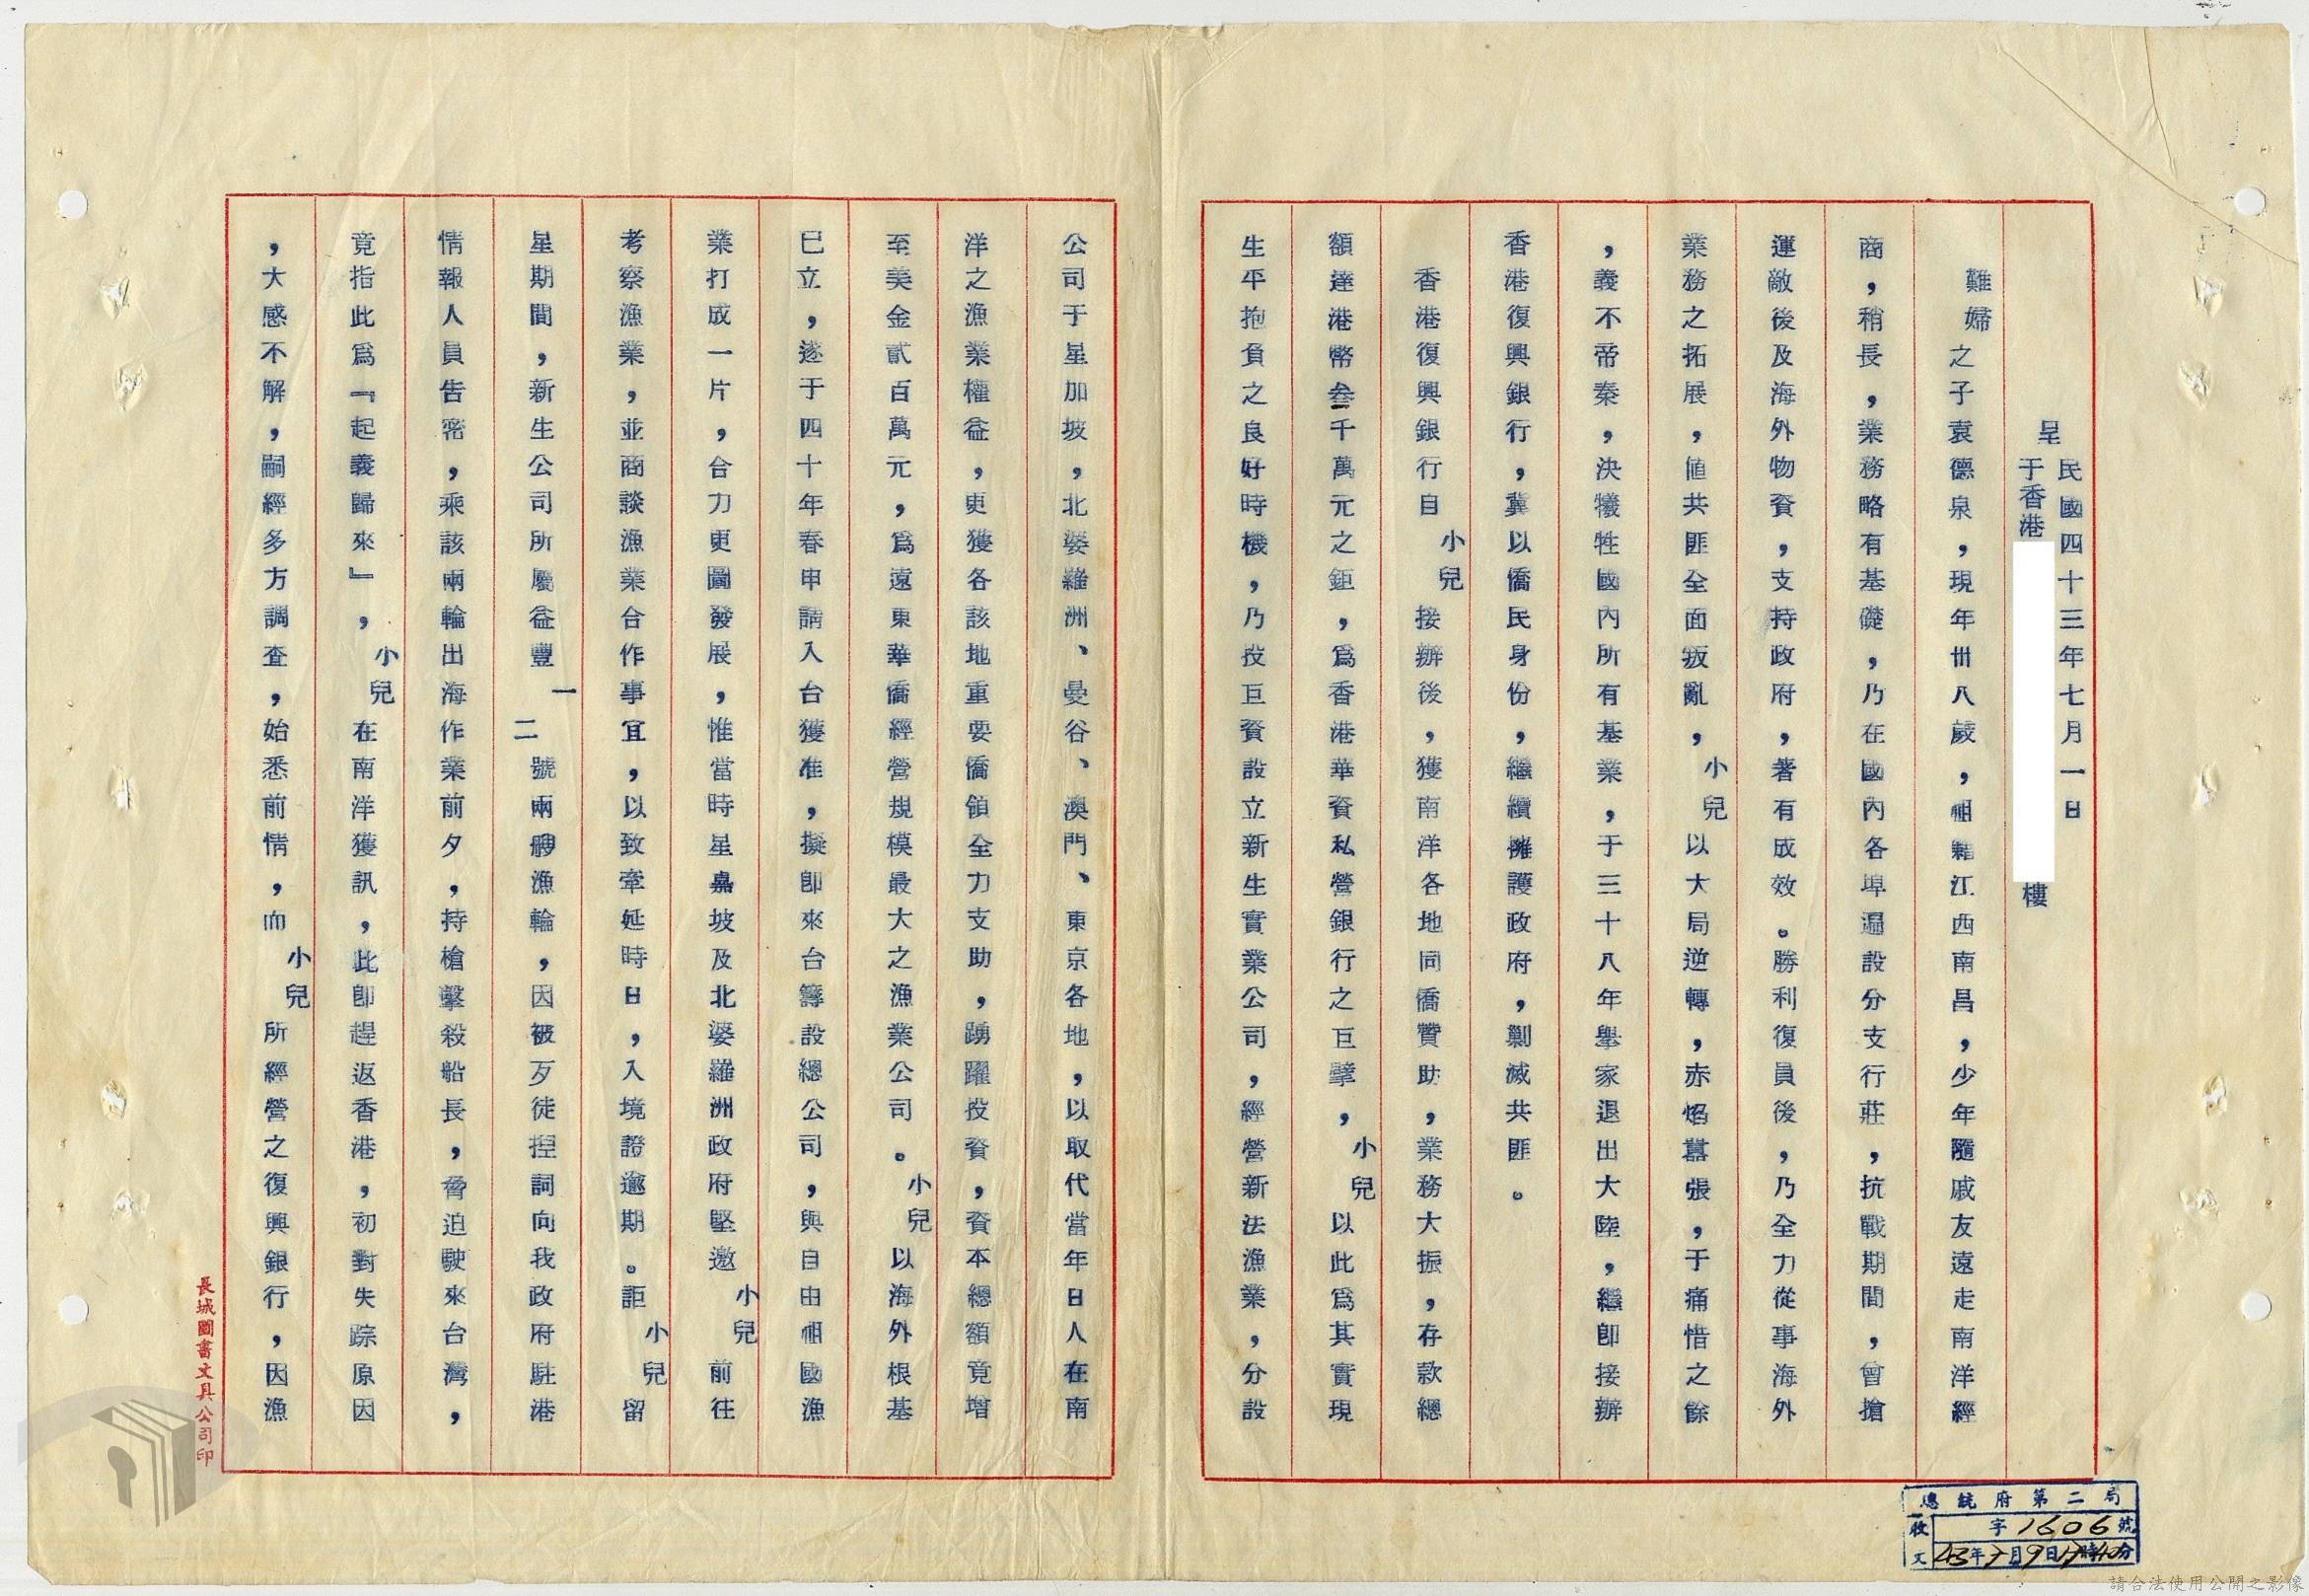 呈
民國四十三年七月一日
于香港
樓
難婦之子袁德泉，現年卅八歲，祖籍江西南昌，少年隨戚友遠走南洋經
商，稍長，業務略有基礎，乃在國內各埠遍設分支行莊，抗戰期間，曾搶
運敵後及海外物資，支持政府，著有成效。勝利復員後，乃全力從事海外
業務之拓展，値共匪全面叛亂，小兒以大局逆轉，赤焰囂張，于痛惜之餘
，義不帝秦，決犧牲國內所有基業，于三十八年舉家退出大陸，繼卽接辦
香港復興銀行，冀以僑民身份，繼續擁護政府，剿滅共匪。
香港復興銀行自小兒接辦後，獲南洋各地同僑贊助，業務大振，存款總
額達港幣叁千萬元之鉅，爲香港華資私營銀行之巨擘，小兒以此爲其實現
生平抱負之良好時機，乃投巨資設立新生實業公司，經營新法漁業，分設
公司于星加坡，北婆羅洲、曼谷、澳門、東京各地，以取代當年日人在南
洋之漁業權益，更獲各該地重要僑領全力支助，踴躍投資，資本總額竟增
至美金貳百萬元，爲遠東華僑經營規模最大之漁業公司。小兒以海外根基
已立，遂于四十年春申請入台獲准，擬卽來台籌設總公司，與自由祖國漁
業打成一片，合力更圖發展，惟當時星嘉坡及北婆羅洲政府堅邀小兒前往
考察漁業，並商談漁業合作事宜，以致牽延時日，入境證逾期。詎小兒留
星期間，新生公司所屬益豐一二號兩艘漁輪，因被歹徒揑詞向我政府駐港
情報人員告密，乘該兩輪出海作業前夕，持槍擊殺船長，脅迫駛來台灣，
竟指此爲『起義歸來』，小兒在南洋獲訊，此卽趕返香港，初對失踪原因
，大感不解，嗣經多方調查，始悉前情，而小兒所經營之復興銀行，因漁
長城圖書文具公司印
總統府第二局
收文
字1606號
43年7月9日17時40分
請合法使用公開之影像